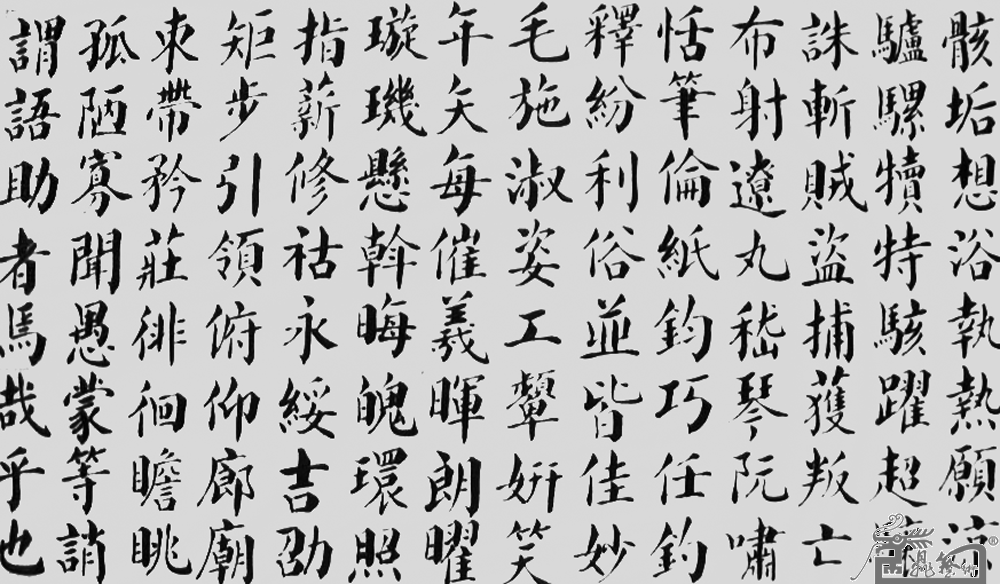 骸垢想浴執熱願涼
驢騾犢特駭躍超驤
誅斬賊盜捕獲叛亡
布射遼丸嵇琴阮嘯
恬筆倫紙鈞巧任釣
釋紛利俗並皆佳妙
毛施淑姿工顰妍笑
年矢每催羲暉朗曜
璇璣懸斡晦魄環照
指薪修祜永綏吉劭
矩步引領俯仰廊廟
束帶矜莊徘徊瞻眺
孤陋寡聞愚蒙等誚
謂語助者焉哉乎也